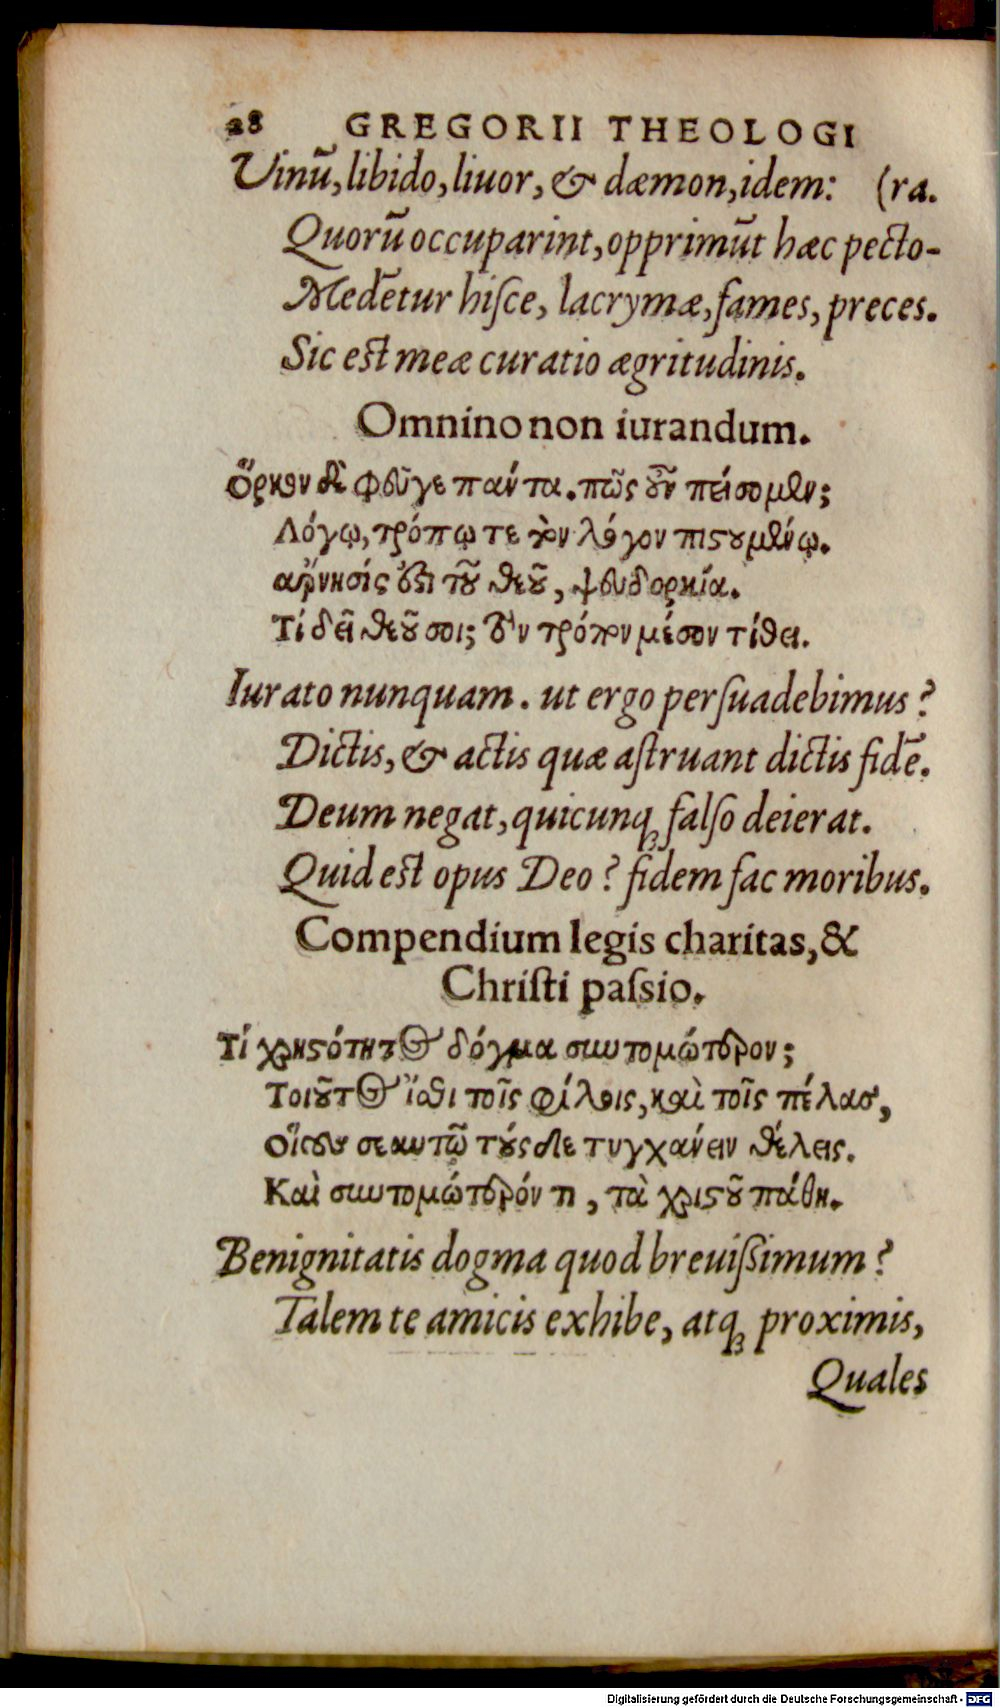 28 GREGORII THEOLOGI
Vinũ, libido, liuor, & dæmon, idem: (ra.
Quorũ occuparint, opprimũt hæc pecto-
Medẽtur hiſce, lacrymæ, fames, preces.
Sic est meæ curatio ægritudinis.
Omnino non iurandum.
Ὅρκον δὲ φεῦγε πάντα. πῶς οὖν πείσομεν;
Λόγῳ, τρόπῳ τε τὸν λόγον πιστουμένῳ.
ἄρνησίς ἐστι τοῦ θεοῦ, ψευδορκία.
Τί δεῖ θεοῦ σοι; τὸν τρόπον μέσον τίθει.
Iurato nunquam. ut ergo perſuadebimus?
Dictis, & actis quæ aſtruant dictis fidẽ.
Deum negat, quicunq; falſo deierat.
Quid est opus Deo? fidem fac moribus.
Compendium legis charitas, &
Chriſti paſsio.
Τί χρηστότητος δόγμα συντομώτερον;
Τοιοῦτος ἴσθι τοῖς φίλοις, καὶ τοῖς πέλας,
οἵων σεαυτῷ τούσδε τυγχάνειν θέλεις.
Καὶ συντομώτερόν τι, τὰ χριστοῦ πάθη.
Benignitatis dogma quod breuiſsimum?
Talem te amicis exhibe, atq; proximis,
Quales
Digitalisierung gefördert durch die Deutsche Forschungsgemeinschaft - DFG